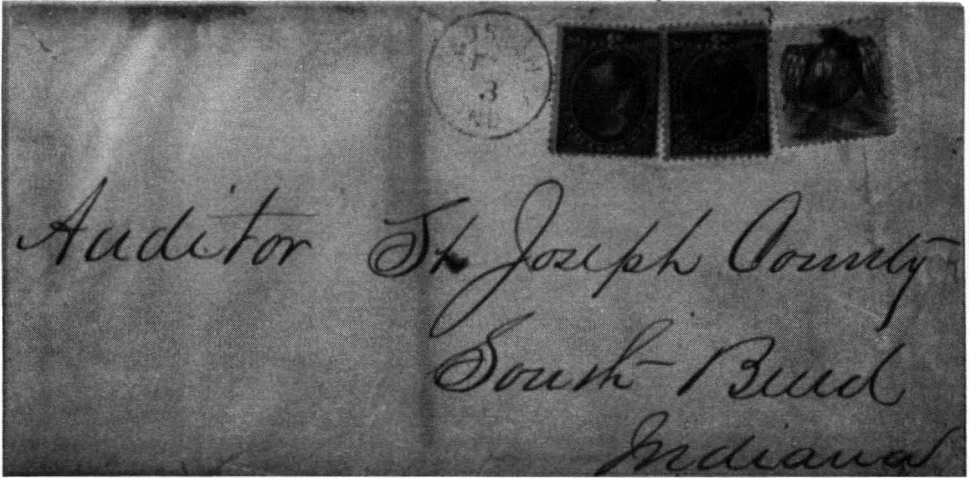 3
IND
Auditor St Joseph County
South Bend
Indiana